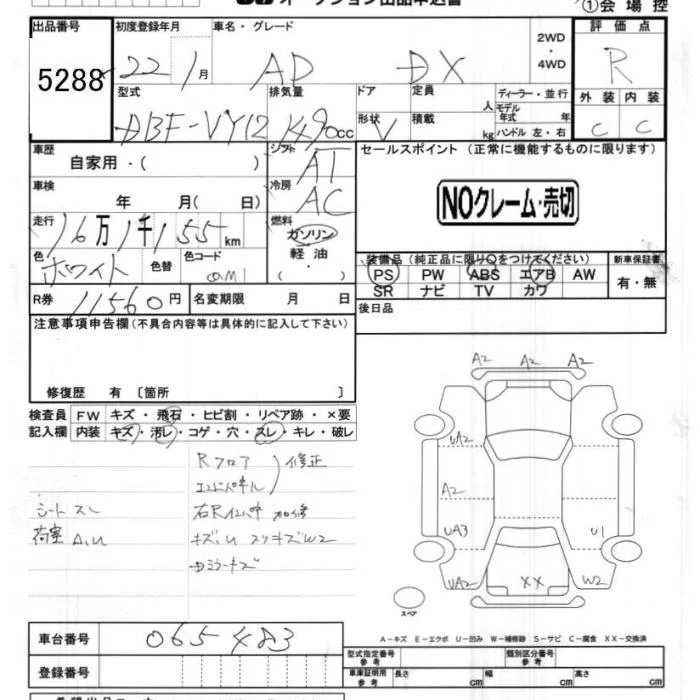 オークション出品申込書
①会場控
出品番号 初度登録年月 車名・グレード 評価点
5288 22 1月 AD DX 2WD・4WD R
型式 排気量 ドア形状 定員 人 ディーラー・並行 外装 内装
DBF-VY12 1490cc V 積載 kg モデル年式 年 ハンドル 左・右 C C
車歴 シフト セールスポイント (正常に機能するものに限ります)
自家用・( ) AT
車検 冷房
年 月( 日) AC NOクレーム・売切
走行 燃料
16万1千155km ガソリン
色 色替 色コード 軽油 装備品 (純正品に限り○をつけてください) 新車保証書
ホワイト QM1 ・( ) PS PW ABS エアB AW 有・無
SR ナビ TV カワ
R券 11560円 名変期限 月 日 後日品
注意事項申告欄(不具合内容等は具体的に記入して下さい)
修復歴 有 〔箇所 〕
検査員 FW キズ・飛石・ヒビ割・リペア跡・×要
記入欄 内装 キズ・汚レ・コゲ・穴・スレ・キレ・破レ
Rフロア
エンドパネル 修正
シートスレ
荷室A,U
右Rインパネ 加修
キズ,U スリキズW2
ミラーキズ
A2 A2 A2
UA2
A2
UA3 U1
UA2 XX W2
スペア
A-キズ E-エクボ U-凹み W-補修跡 S-サビ C-腐食 XX-交換済
車台番号 065483
型式指定番号 参考 類別区分番号 参考
登録番号 車庫証明用 参考 長さ cm 幅 cm 高さ cm